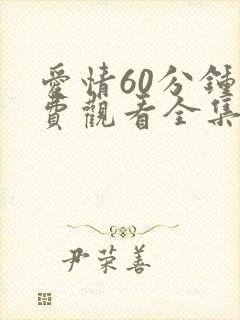 愛情60分鍾
費觀看全集
尹荣善